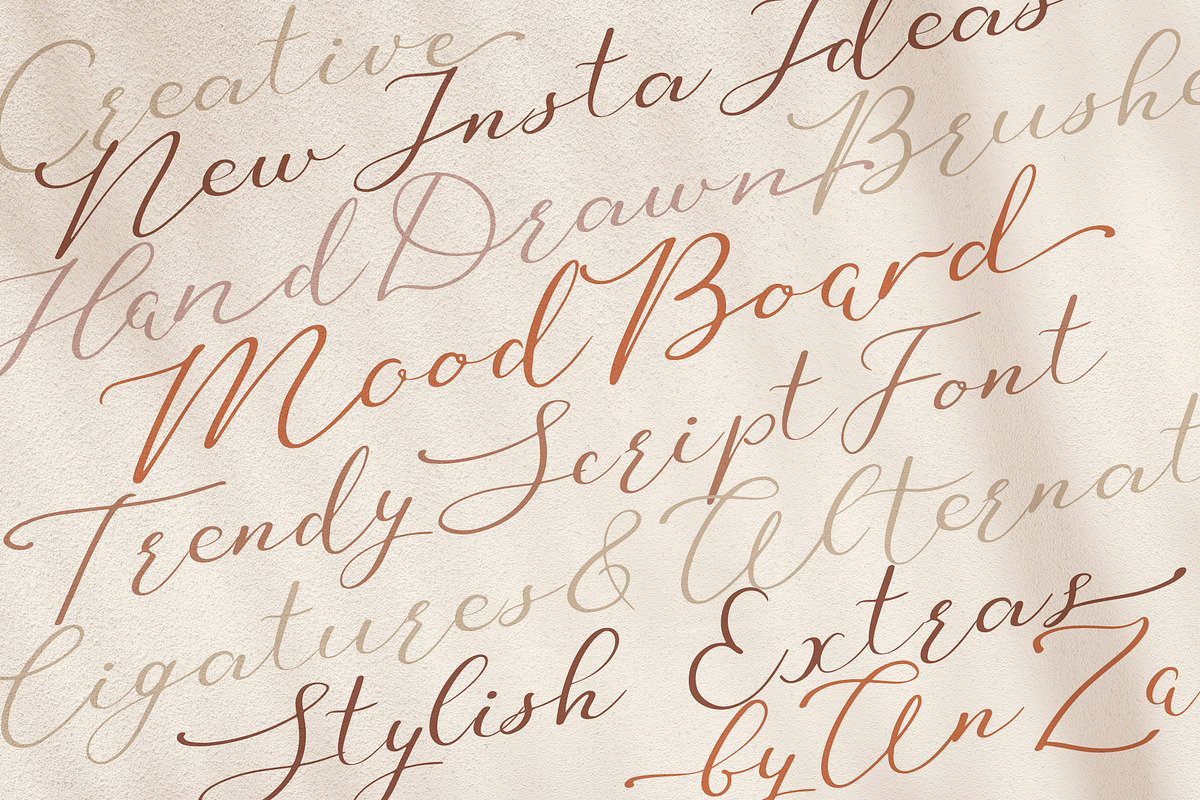 Creative
New Insta Ideas
Hand Drawn Brushe
Mood Board
Trendy Script Font
Ligatures & Alternat
Stylish Extras
by An Za